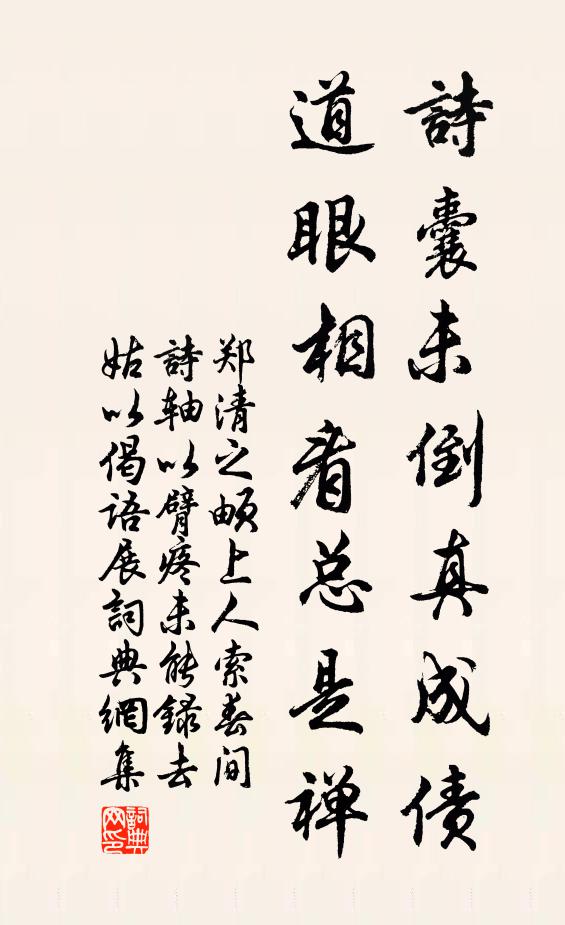 詩囊未倒真成债
道眼相看总是禅
郑清之頔上人索春间
詩轴以臂疼未能録去
姑以偈语展詞典網集
詞典網印